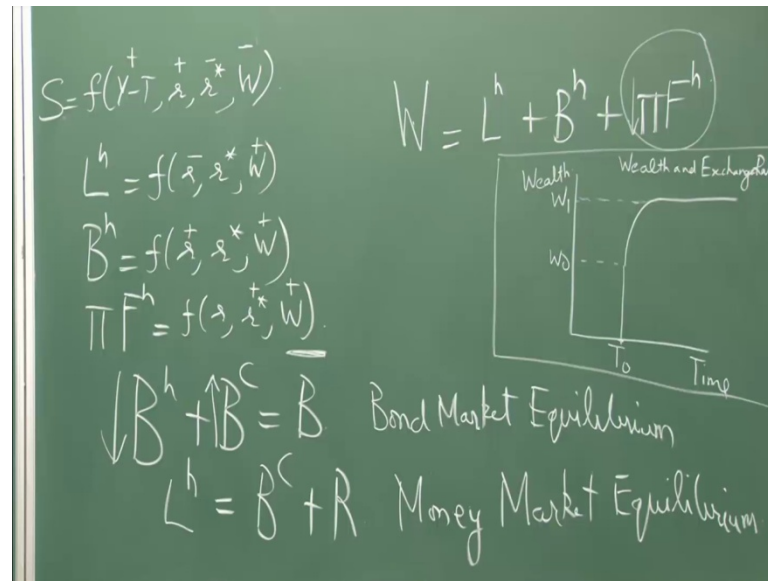 S = f(Y-T, r, r*, W)
+ + - -
W = L^h + B^h + ↓πF^h
L^h = f(r, r*, W)
- +
B^h = f(r, r*, W)
+ +
πF^h = f(r, r*, W).
+ +
Wealth and Exchange
Wealth
W1
W0
T0
Time
↓B^h + ↑B^c = B Bond Market Equilibrium
L^h = B^c + R Money Market Equilibrium